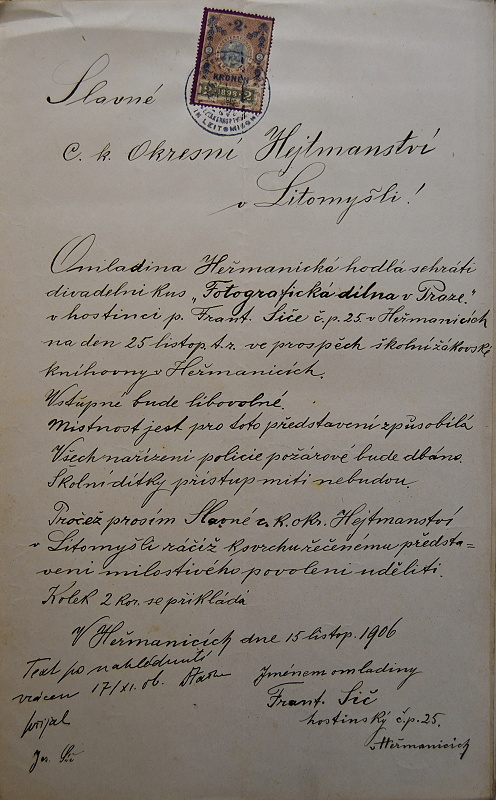 2
KRONEN
2 1898 2
IN LEITOMISCHL
Slavné
c. k. Okresní Hejtmanství
v Litomyšli!
Omladina Heřmanická hodlá sehráti
divadelní kus „Fotografická dílna v Praze."
v hostinci p. Frant. Siče č.p. 25. v Heřmanicích
na den 25 listop. t. r. ve prospěch školní žákovské
knihovny v Heřmanicích.
Vstupné bude libovolné.
Místnost jest pro toto představení způsobilá
Všech nařízení policie požárové bude dbáno.
Školní dítky přístup míti nebudou.
Pročež prosím Slavné c. k. okr. Hejtmanství
v Litomyšli ráčíž k svrchu řečenému předsta=
vení milostivého povolení uděliti.
Kolek 2 kor. se přikládá
V Heřmanicích dne 15 listop. 1906
Text po nahlédnutí
vrácen 17/XI. 06.
přijal
Jos. Sič
Jménem omladiny
Frant. Sič
hostinský č.p. 25.
v Heřmanicích